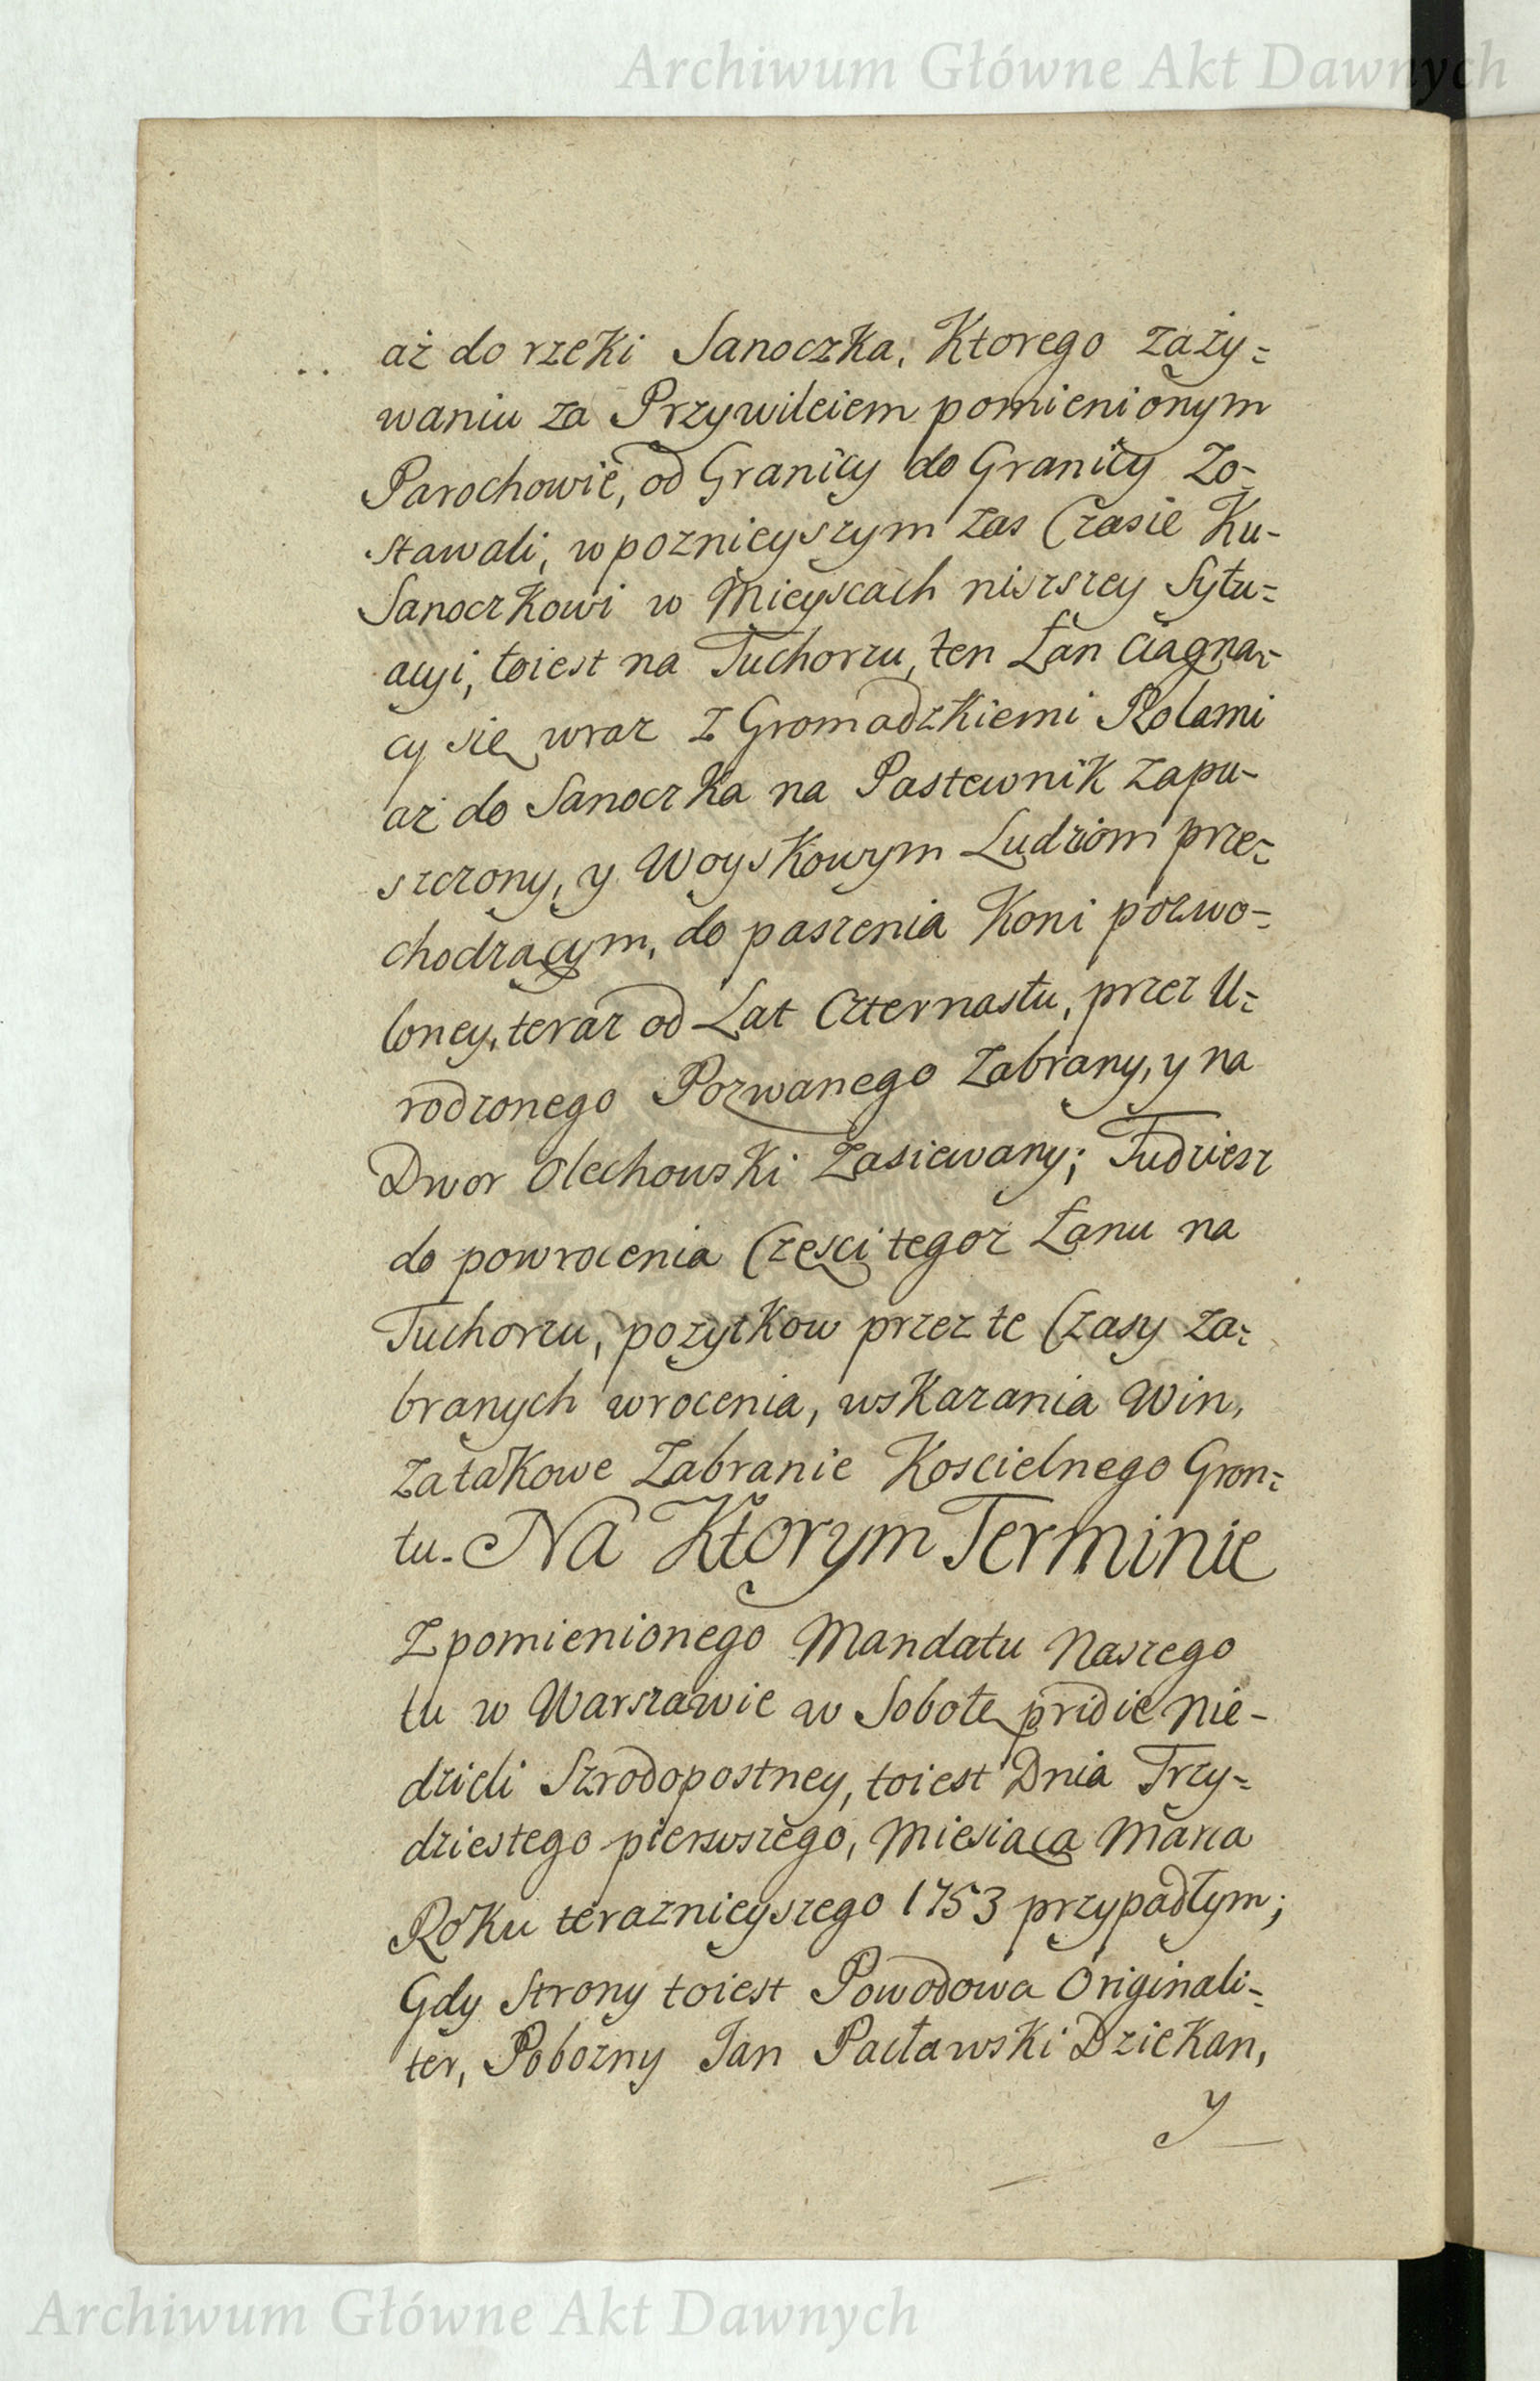 Archiwum Główne Akt Dawnych
aż do rzeki Sanoczka, Ktorego zaży=
waniu za Przywileiem pomienionym
Parochowie, od Granicy do Granicy Zo=
stawali, w poznieyszym zas Czasie Ku-
Sanoczkowi w Mieyscach niszszey Sytu=
acyi, toiest na Tuchorzu, ten Łan Ciągną-
cy się wraz z Gromadzkiemi Rolami
aż do Sanoczka na Pastewnik zapu-
szczony, y Woyskowym Ludziom prze=
chodzącym, do paszenia Koni pozwo=
loney, teraz od Lat Czternastu, przez U=
rodzonego Pozwanego Zabrany, y na
Dwor Olechowski Zasiewany; Tudziesz
do powrocenia Części tegoż Łanu na
Tuchorzu, pożytkow przez te Czasy za=
branych wrocenia, wskazania Win,
za takowe Zabranie Koscielnego Gron=
tu. Na Ktorym Terminie
Z pomienionego Mandatu Naszego
tu w Warszawie w Sobotę pridie Nie-
dzieli Szrodopostney, toiest Dnia Trzy=
dziestego pierwszego, Miesiąca Marca
Roku teraznieyszego 1753 przypadłym;
Gdy Strony toiest Powodowa Originali=
ter, Pobożny Jan Pacławski Dziekan,
y
Archiwum Główne Akt Dawnych